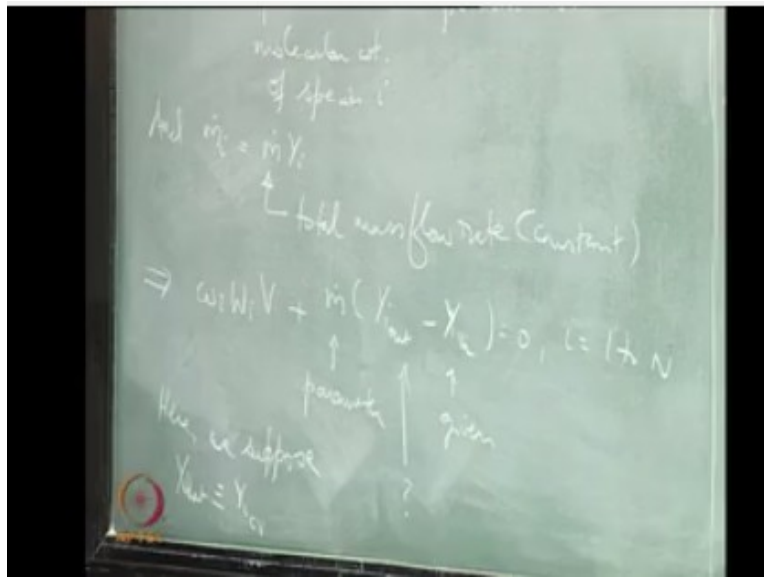 molecular wt.
of species i
And ṁi = ṁ Yi
total mass flow rate (constant)
⇒ ωi Wi V + ṁ ( Yi,out - Yi,in ) = 0, i = 1 to N
parameter
given
?
Here, we suppose